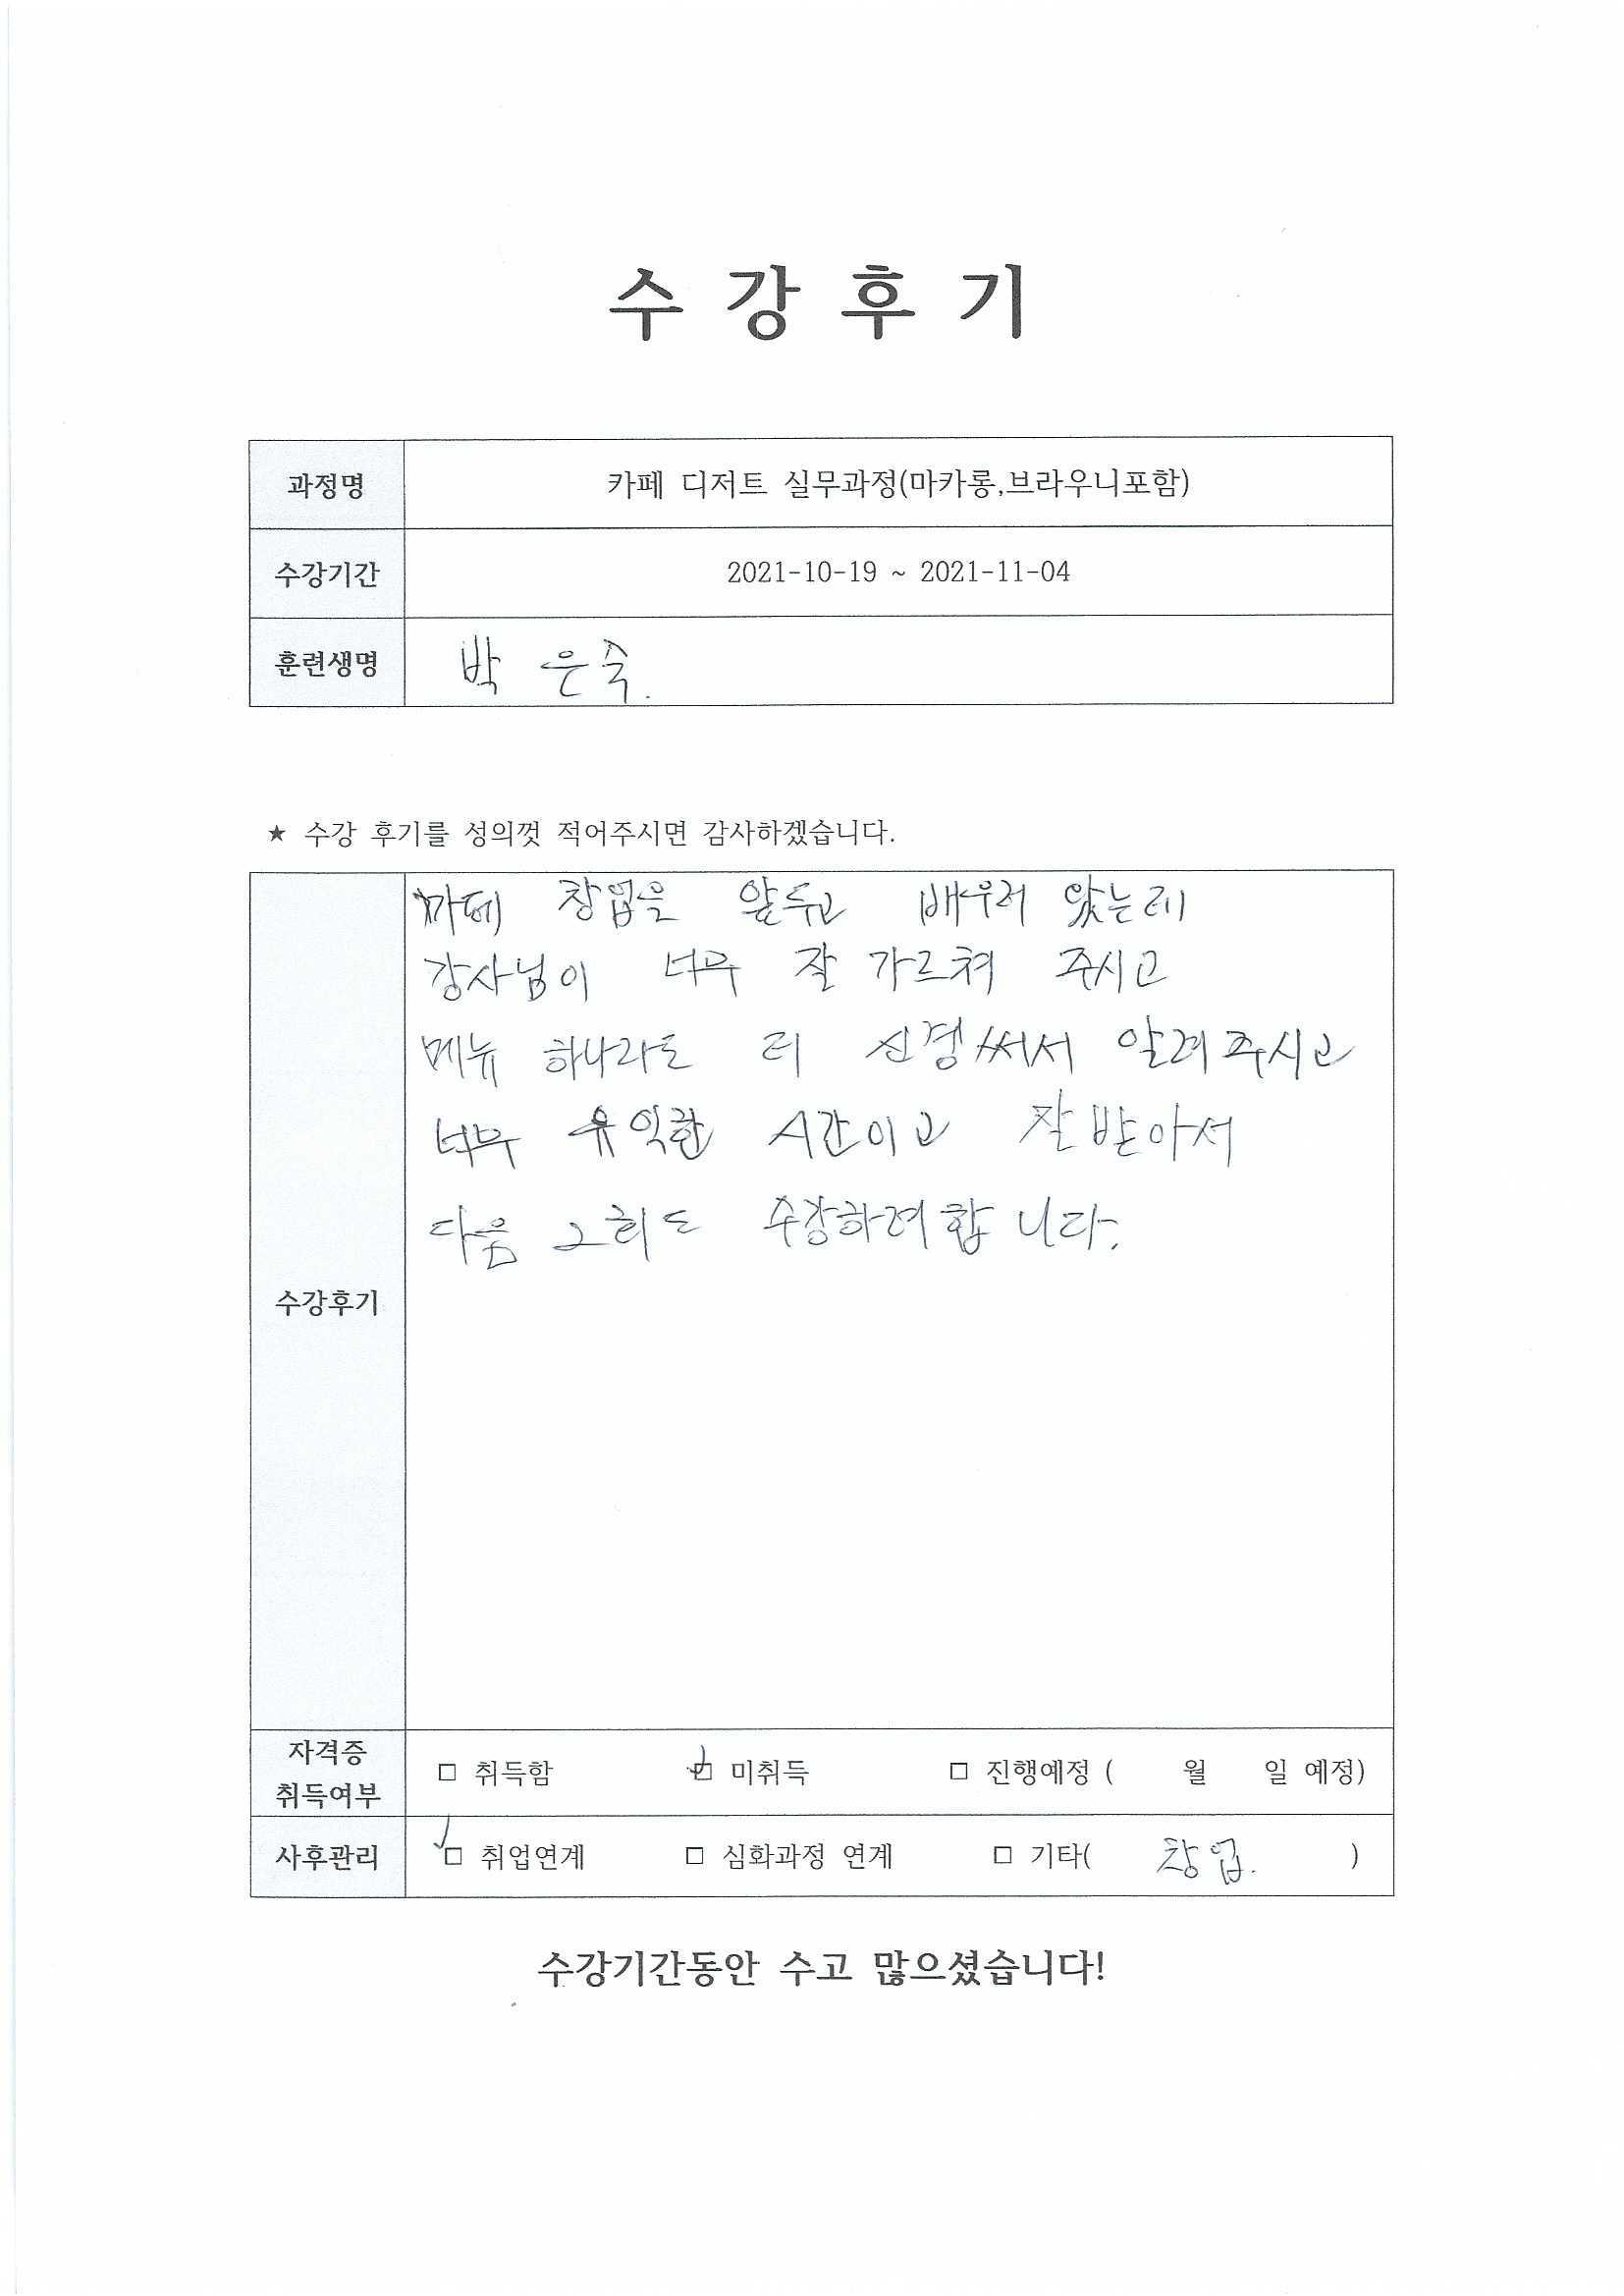 수 강 후 기
과정명 카페 디저트 실무과정(마카롱,브라우니포함)
수강기간 2021-10-19 ~ 2021-11-04
훈련생명 박 은숙.
★ 수강 후기를 성의껏 적어주시면 감사하겠습니다.
수강후기
창업을 앞두고 배우러 왔는데
강사님이 너무 잘 가르쳐 주시고
메뉴 하나라도 더 신경써서 알려주시고
너무 유익한 시간이고 잘 받아서
다음 2회도 수강하려 합니다.
자격증 취득여부 □ 취득함 □ 미취득 □ 진행예정 ( 월 일 예정)
사후관리 □ 취업연계 □ 심화과정 연계 □ 기타( 창업. )
수강기간동안 수고 많으셨습니다!